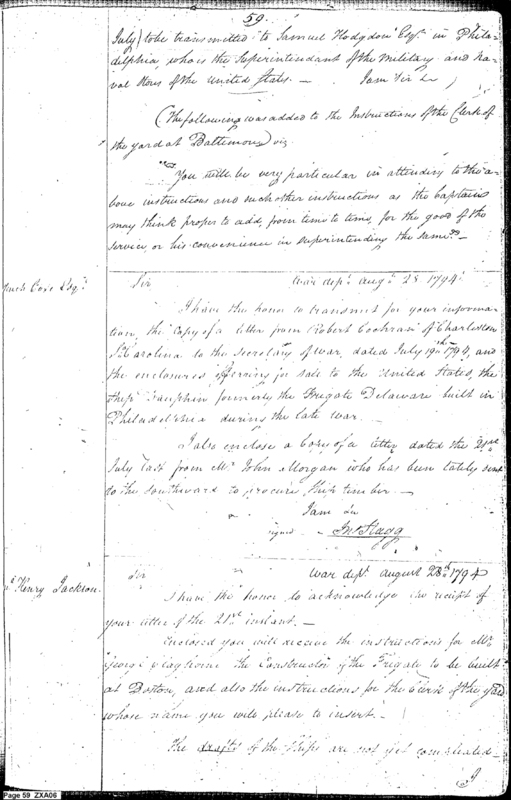 59
July) to be transmitted to Samuel Hodgdon Esqr in Phila-
delphia, who is the Superintendant of the Military and Na-
val Stores of the United States. — I am Sir &c
(The following was added to the Instructions of the Clerk of
the yard at Baltimore) viz.
"You will be very particular in attending to the a-
bove instructions and such other instructions as the Captain
may think proper to add, from time to time, for the good of the
service, or his convenience in superintending the same." —
Coxe Esqr
Sir War dept. augt 28 1794
I have the honor to transmit for your informa-
tion, the copy of a letter from Robert Cochran of Charleston
So Carolina to the Secretary of War, dated July 19th 1794, and
the enclosures offering for sale to the United States, the
Ship Dauphin formerly the Frigate Delaware built in
Philadelphia during the late war.
I also enclose a Copy of a letter dated the 21st
July last from Mr John Morgan who has been lately sent
to the Southward to procure Ship timber —
I am &c
signed Jno Stagg
Henry Jackson
Sir War dept. august 28th 1794
I have the honor to acknowledge the receipt of
your letter of the 21st instant. —
Enclosed you will receive the instructions for Mr
George Claghorne the Constructor of the Frigate to be built
at Boston, and also the instructions for the Clerk of the yard
whose name you will please to insert. —
The drafts of the Ships are not yet completed —
Page 59 ZXA06